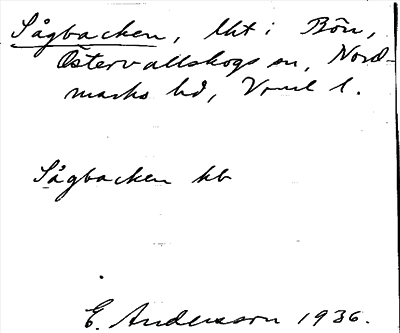 Sågbacken, lht i Bön,
Östervallskogs sn, Nord-
marks hd, Vrml l.
Sågbacken hb
E. Andersson 1936.